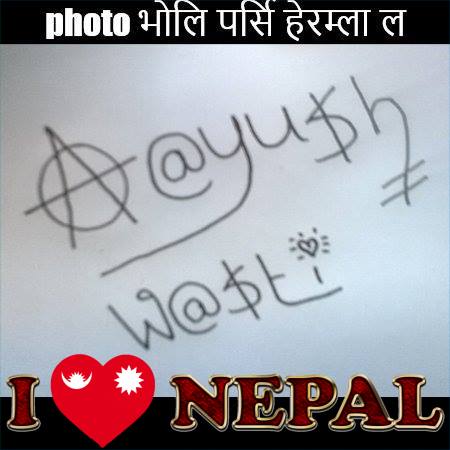 photo भोलि पर्सि हेरम्ला ल
A@yu$h
W@$ti
I NEPAL